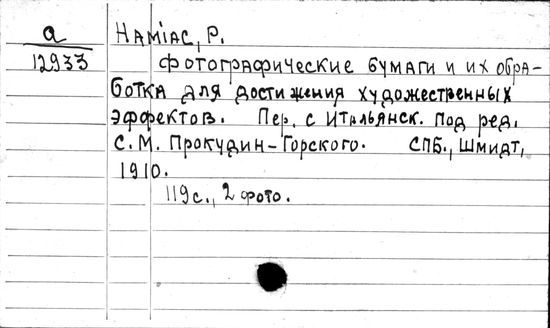 а
12933
Наміас, Р.
Фотографические бумаги и их обра-
ботка для достижения художественных
эффектов. Пер. с итальянск. под ред.
С. М. Прокудин-Горского. СПБ., Шмидт,
1910.
119 с., 2 фото.